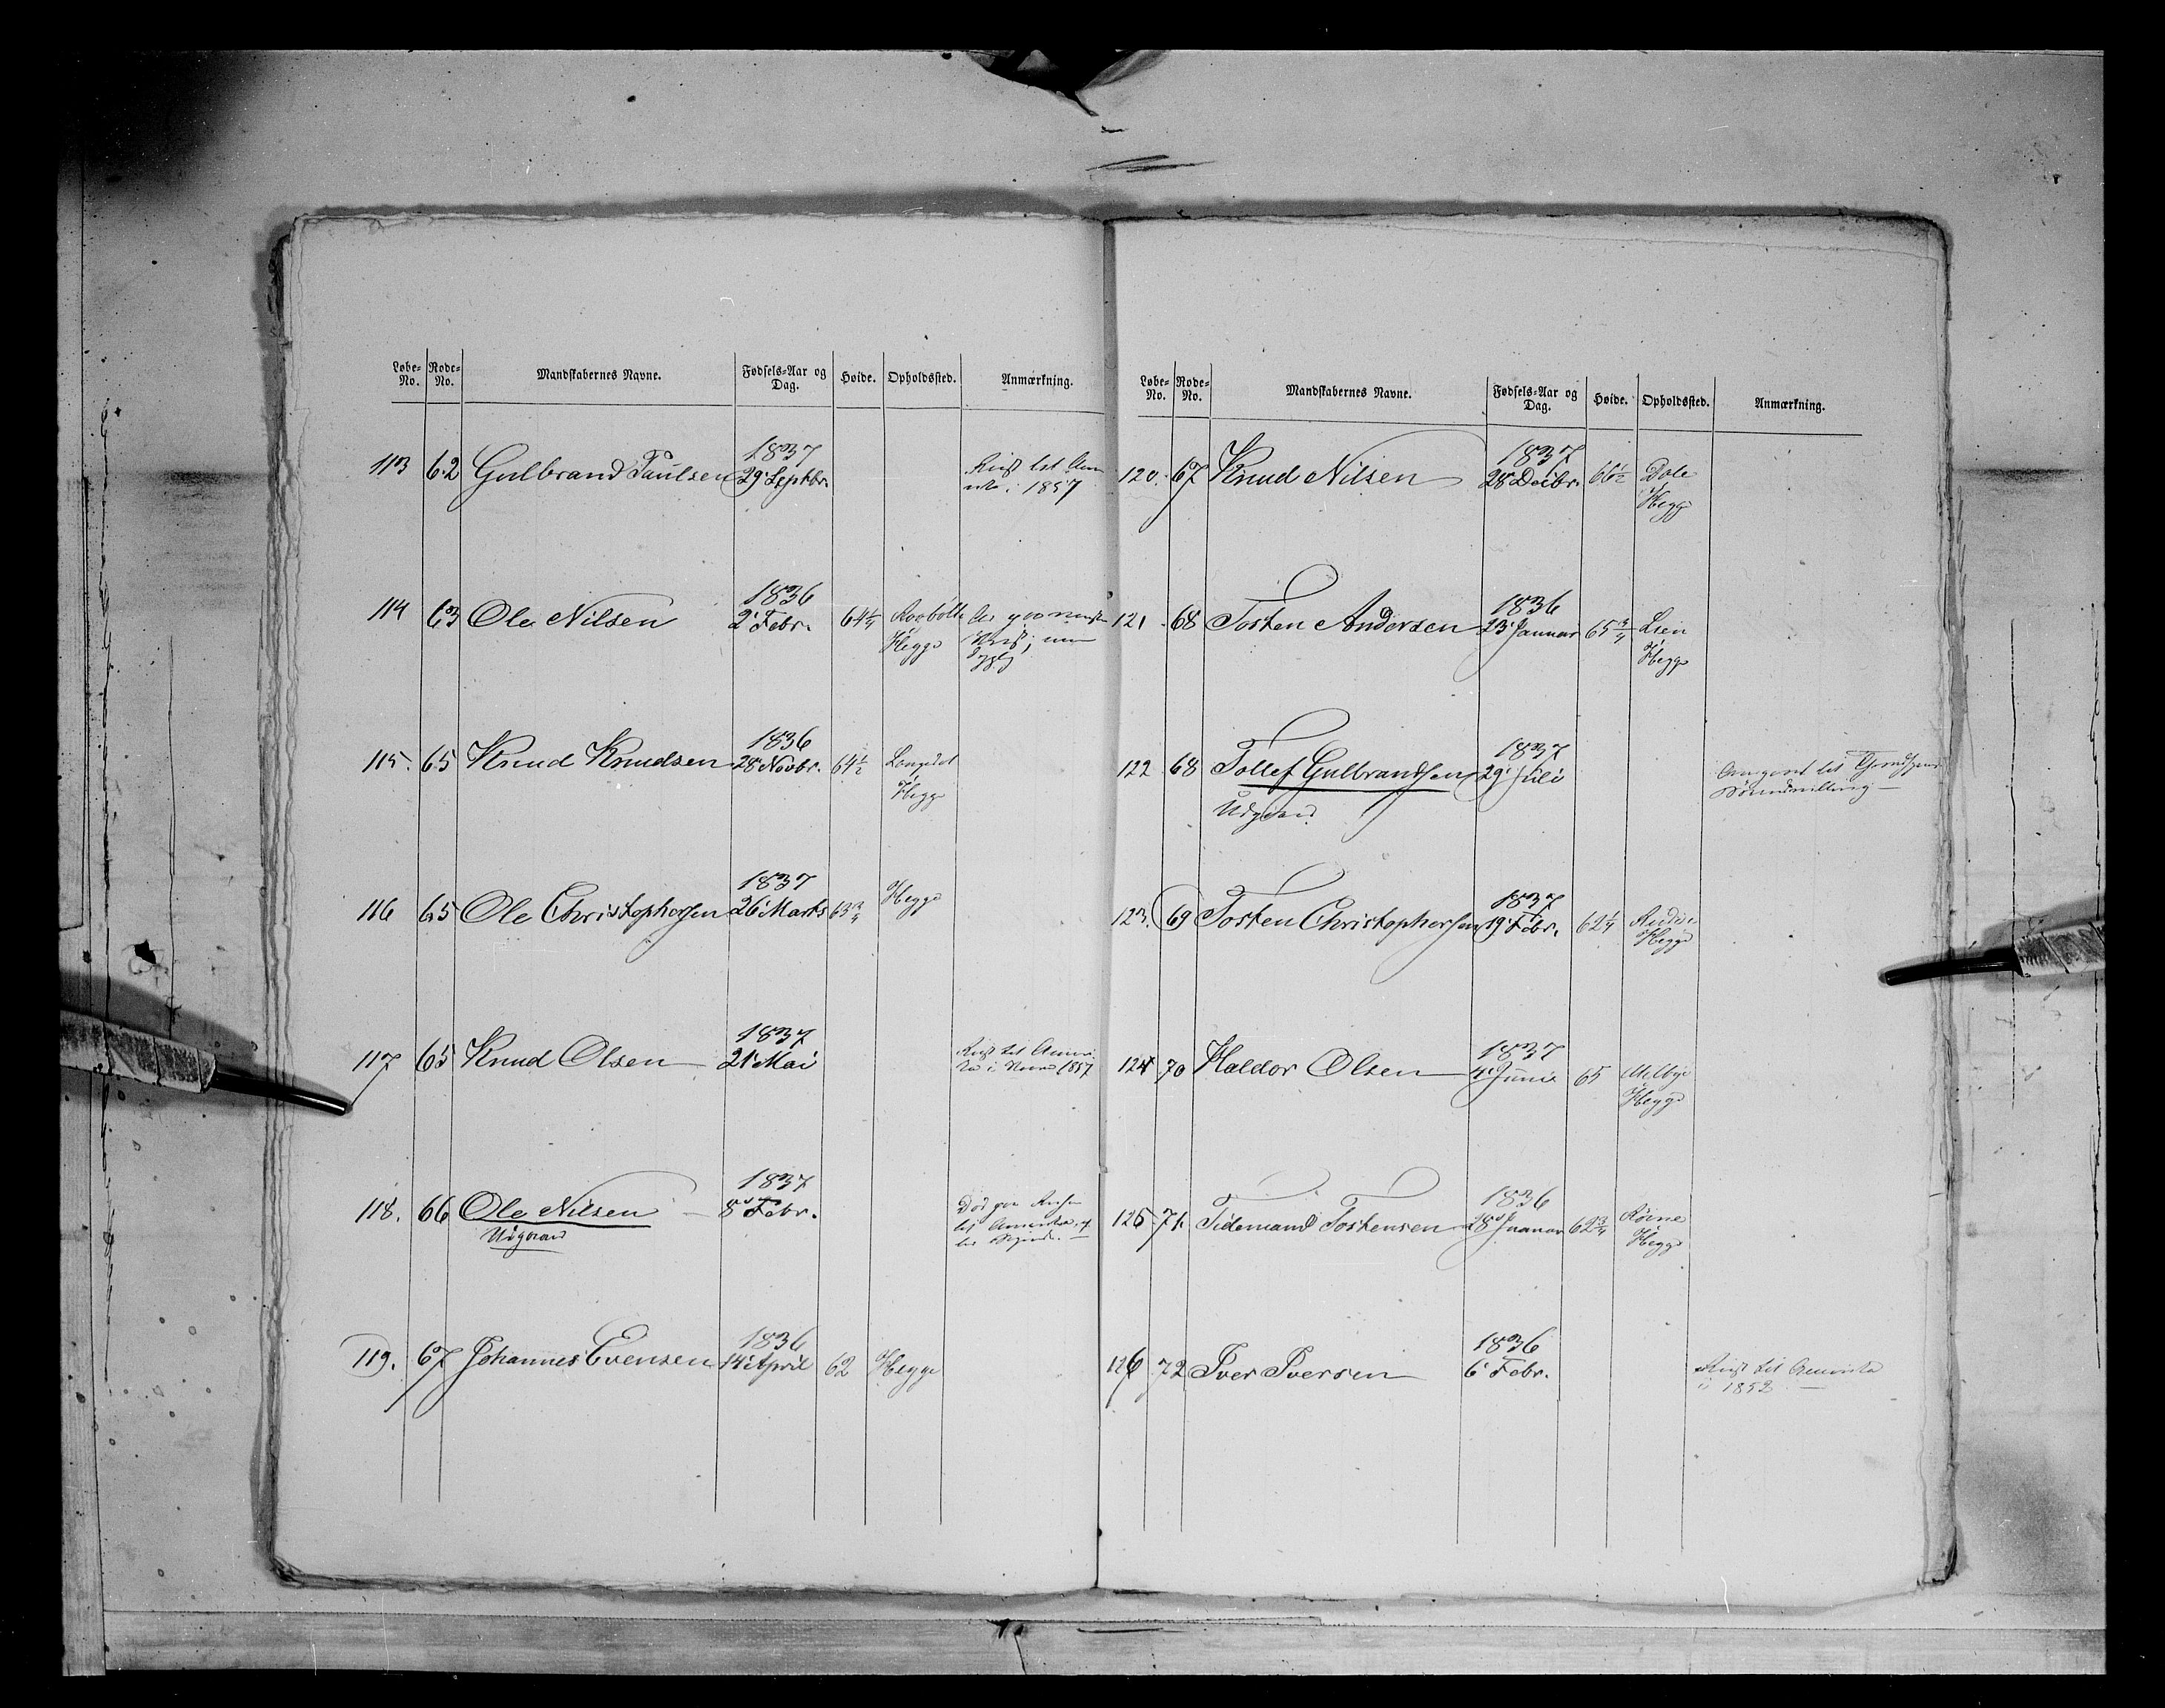 Løbe-No. Rode-No. Mandskabernes Navne. Fødsels-Aar og Dag. Høide. Opholdssted. Anmærkning.
113 62 Gulbrand Paulsen 1837 29' Septbr. Reist til Ame
rika i 1857
114 63 Ole Nilsen 1836 2' Febr. 64 1/4
Hegge
115. 65 Knud Knudsen 1836 28' Novbr. 64 1/2
Hegge
116 65 Ole Christophersen 1837 26' Marts 63 3/4 Hegge
117 65 Knud Olsen 1837 21' Mai Reist til Ameri-
ka i 1857
118. 66 Ole Nilsen 1837 8' Febr. Død paa Reisen
til Amerika
Udgaaed
119. 67 Johannes Evensen 1836 14' April 62 Hegge
Løbe-No. Rode-No. Mandskabernes Navne. Fødsels-Aar og Dag. Høide. Opholdssted. Anmærkning.
120. 67 Knud Nilsen 1837 28' Decbr. 66 1/2 Dale
Hegge
121 68 Tosten Andersen 1836 23' Januar 65 3/4 Lien
Hegge
122 68 Tollef Gulbrandsen 1837 29' Juli
Udgaaed
123. 69 Tosten Christophersen 1837 19' Febr. 62 1/4
Hegge
124 70 Haldor Olsen 1837 4' Junie 65 Melbye
Hegge
125 71. Tidemand Tostensen 1836 28' Januar 62 3/4
Hegge
126 72 Iver Iversen 1836 6' Febr. Reist til Amerika
i 1852